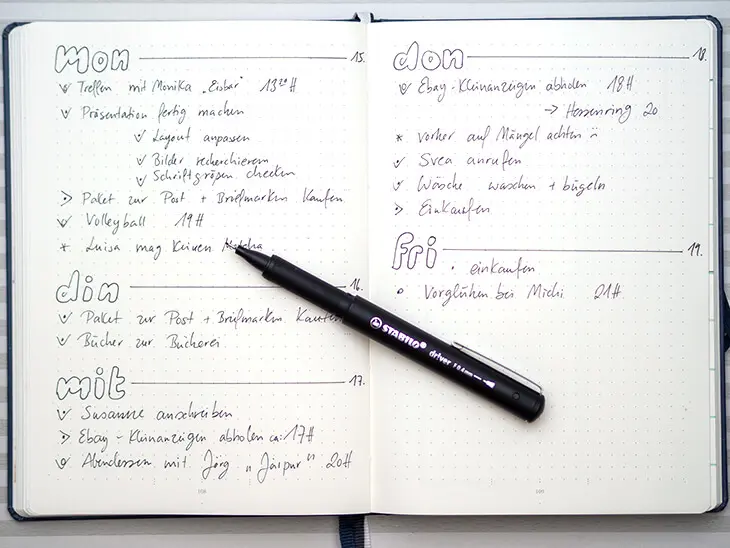 mon 15.
Treffen mit Monika „Eisbär" 13³⁰H
Präsentation fertig machen
Layout anpassen
Bilder recherchieren
Schriftgrößen checken
> Paket zur Post + Briefmarken kaufen
Volleyball 19H
* Luisa mag keinen Matcha
din 16.
Paket zur Post + Briefmarken kaufen
Bücher zur Bücherei
mit 17.
Susanne anschreiben
> Ebay-Kleinanzeigen abholen ca. 17H
Abendessen mit Jörg „Jaipur" 20H
108
don 18.
Ebay-Kleinanzeigen abholen 18H
→ Hessenring 20
* vorher auf Mängel achten
Svea anrufen
Wäsche waschen + bügeln
> Einkaufen
fri 19.
• einkaufen
Vorglühen bei Michi 21H
109
STABILO® driver